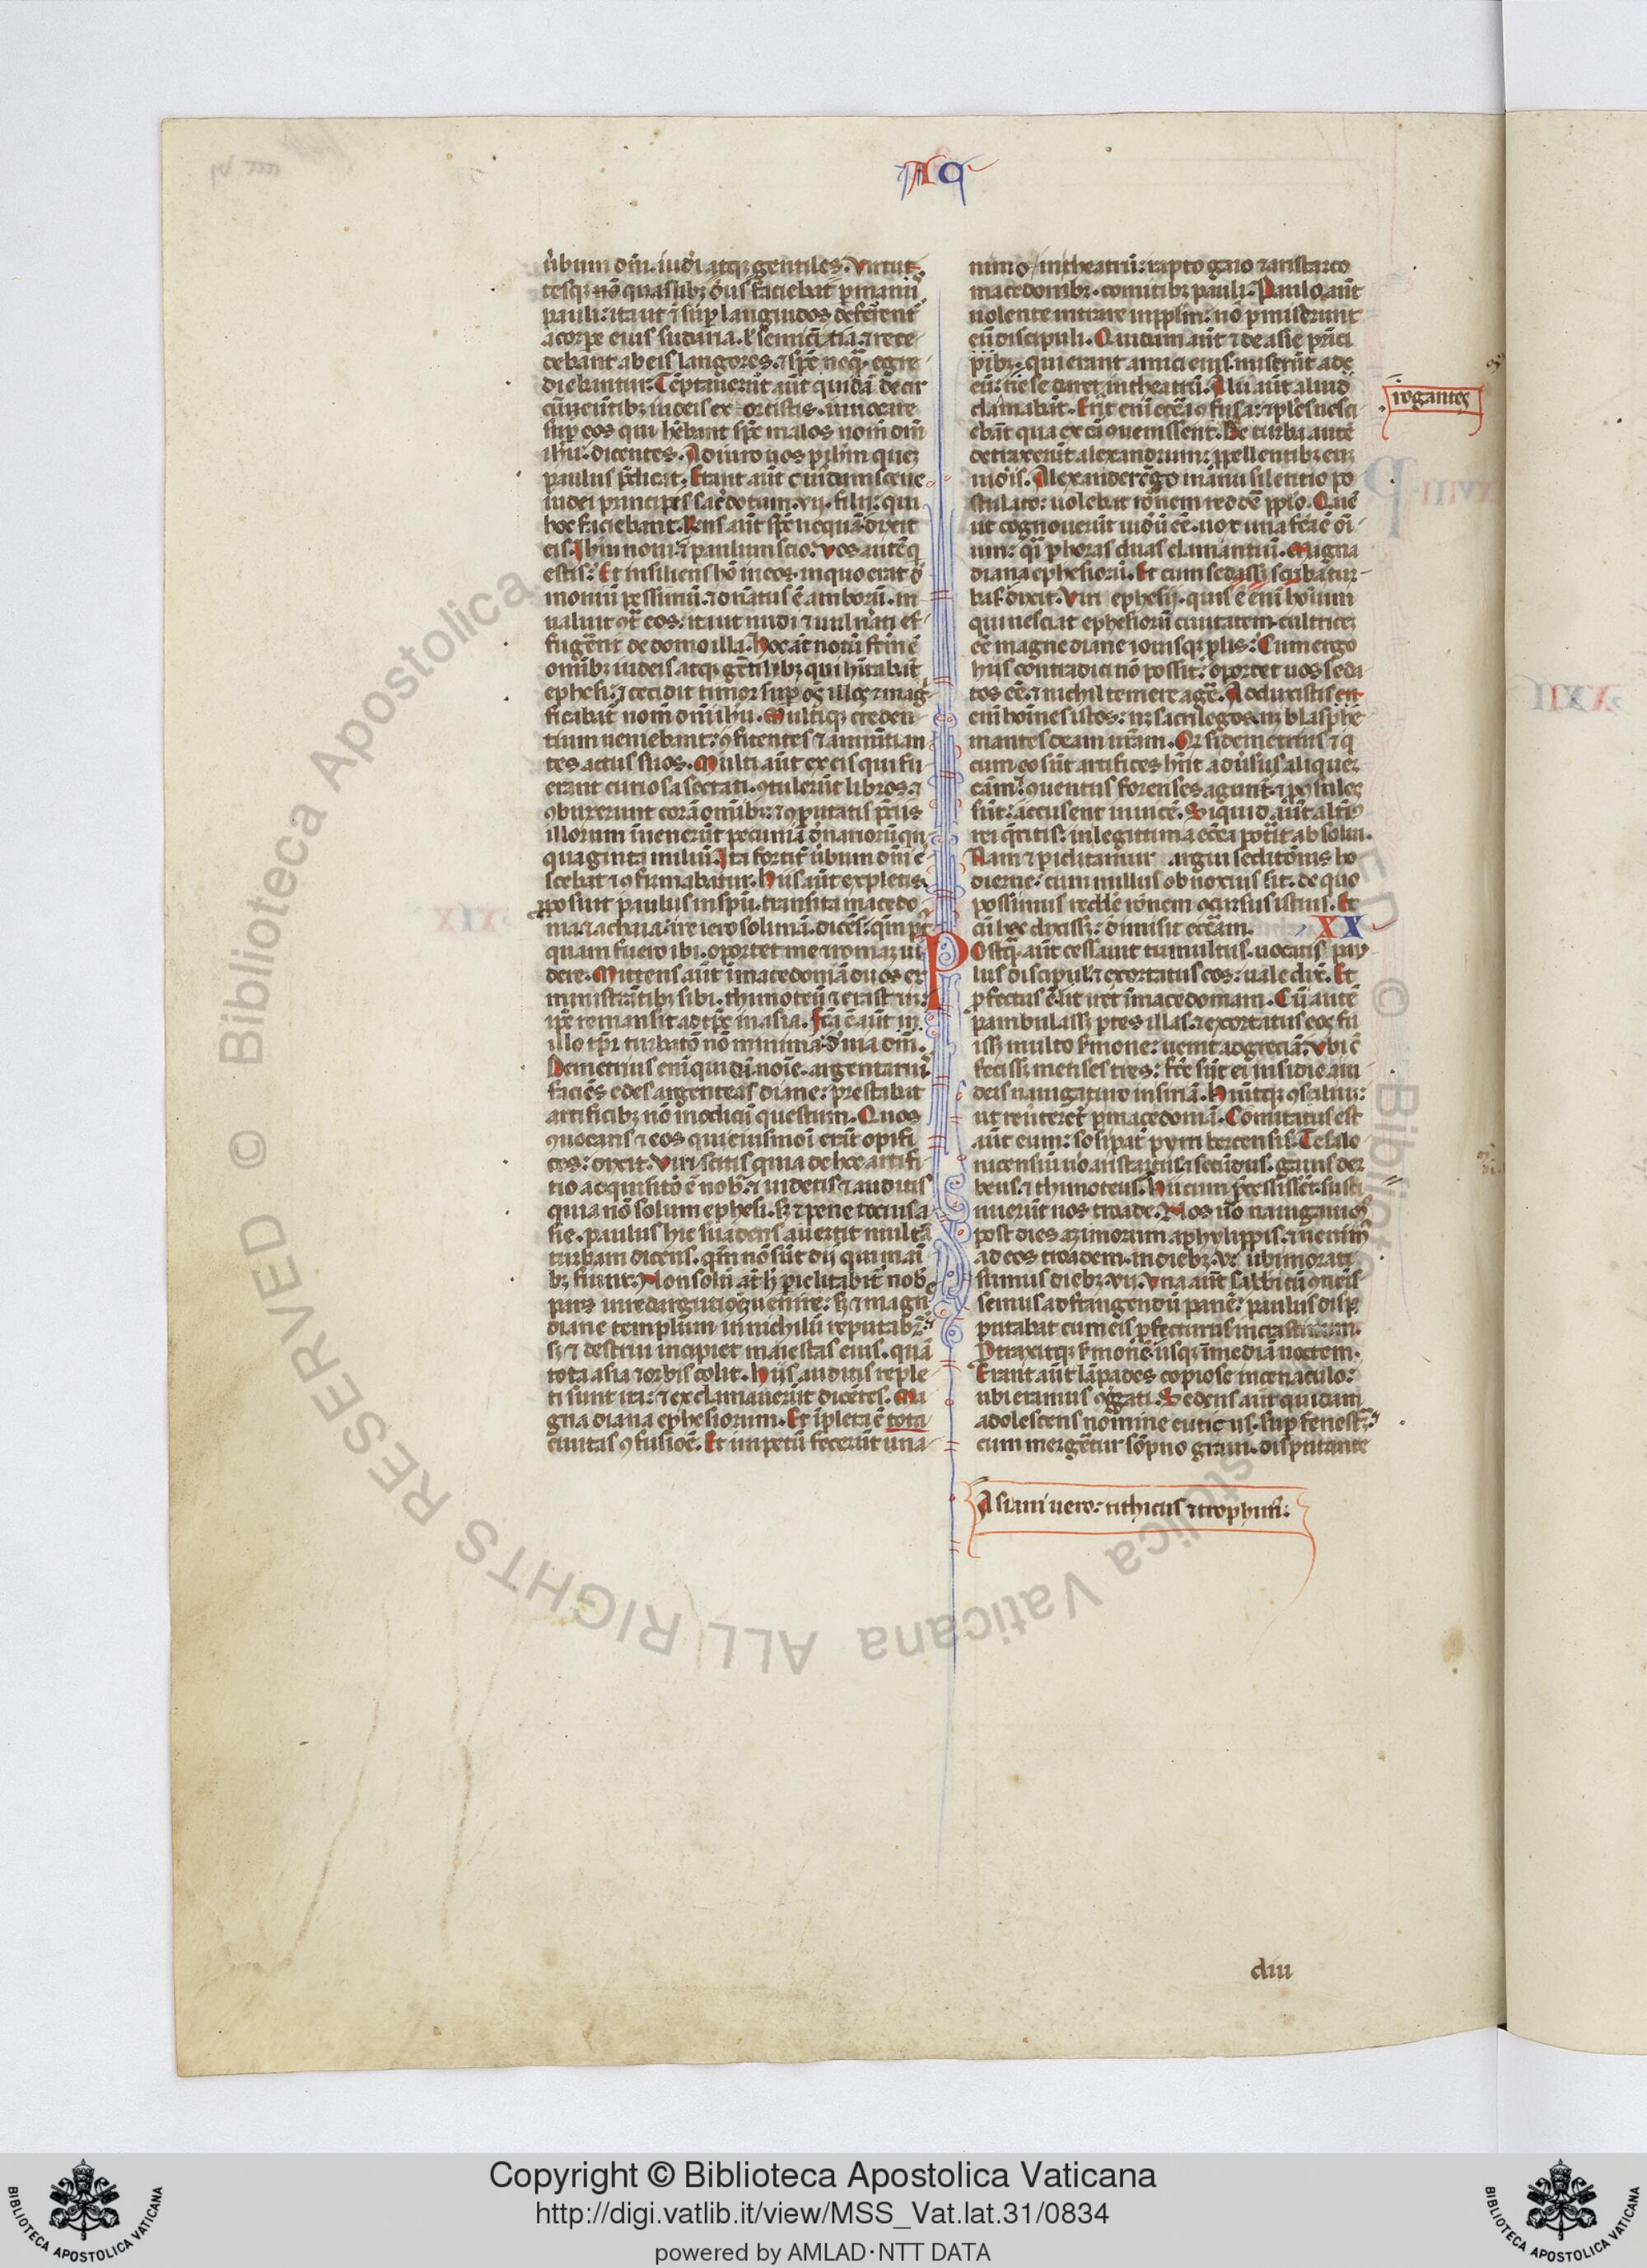 A9
ūbum dn̄i. iudi atq; gentiles. Virtu-
tesq; nō quaslib; dn̄s faciebat p manū
pauli: ita ut ⁊ sup languidos deferent̄
a corpe eius sudaria. ł semicītia. ⁊ rece-
debant ab eis langores. ⁊ sp̄c neq̄. egre-
diebantur. Tēptauerūt aūt quidā de cir
cūeūtib; iudeis exorcistis. inuocare
sup eos qui hēbant sp̄c malos nom̄ dn̄i
ihu. dicentes. Adiuro uos p ihm quez
paulus p̄dicat. Erant aūt cuidam sceue
iudei principis sac̄dotum. vij. filij: qui
hoc faciebant. Rn̄s aūt sp̄c nequā. dixit
eis. Ihm noui. ⁊ paulum scio: Vos autē q
estis? Et insiliens hō in eos. in quo erat d̄
moniū pessimū. ⁊ dn̄atus ē amborū. in
ualuit ɔt̄ eos. ita ut nudi ⁊ uuln̄ati ef-
fugēnt de domo illa. Hoc āt notū fctm̄ ē
om̄ib; iudeis. atq; gētilib; qui hītabāt
ephesi. ⁊ cecidit timor sup om̄s illos ⁊ mag-
ficabāt nom̄ dn̄i ihu. Multiq; creden-
tium ueniebant: ɔfitentes ⁊ annūtian
tes actus suos. Multi aūt ex eis qui fu-
erant curiosa sectati. ɔtulerūt libros. ⁊
ɔburerunt corā om̄ib;: ⁊ ɔputatis p̄ciis
illorum inuenerūt pecuniā dn̄arioru qn̄
quaginta miliū. Ita fortit̄ ūbum dn̄i c̄
scebat ⁊ ɔfirmabatur. Hiis aūt expletis.
p̄posuit paulus in spū. transita macedo
nia ⁊ achaia. ire ierosolimā. dicēs: qm̄ pt
quam fuero ibi. oportet me ⁊ romaz ui
dere. Mittens aūt i macedoniā duos ex
ministrātib; sibi. thimoteū ⁊ erastum:
ip̄e remansit ad tp̄c in asia. Fca ē aūt in
illo tp̄r turbatō nō minima d̄ uia dn̄i.
Demetrius eni quidā noīe. argentariꝰ
faciēs edes argenteas diane: prestabat
artificib; nō modicū questum. Quos
ɔuocans ⁊ eos qui eiusmōi erāt opifi
ces: dixit. Viri scitis quia de hoc artifi-
tio acquisitō ē nob̄. ⁊ uidetis ⁊ auditis
quia nō solum ephesi. s; ⁊ pene tocius a-
sie. paulus hic suadens auertit multā
turbam dicens. qm̄ nō sūt dij qui mani
b; fiunt. Non solū āt h̄ piclitabit̄ nob̄
pars in redargutiōez uenire: s; ⁊ magn̄
diane templum in nichilū reputabr̄
s; ⁊ destrui incipiet maiestas eius. quā
tota asia ⁊ orbis colit. Hiis auditis reple
ti sunt ira: ⁊ exclamauerūt dicētes. Ma
gna diana ephesiorum. Et ipleta ē tota
ciuitas ɔfusiōe. Et impetū fecerūt una-
nimo in theatrū: rapto gaio ⁊ aristarco
macedonib;. comitib; pauli. Paulo aūt
uolente intrare in ppłm: nō pmiserunt
eū discipuli. Quidam aūt ⁊ de asie prīci
pib;. qui erant amici eius. miserūt ad
eū: ne se daret in theatrū. Alii aūt aliud
clamabāt. Erāt eni ecc̄a ɔfusa: ⁊ ples nesci
ebāt qua ex cā ɔuenissent. De turba autē
detraxerūt alexandrum: ppellentib; eum
iudīs. Alexander ergo manu silentio po
stulato: uolebat rōnem reddē pplo. Quē
ut cognouerūt iudeū ēē. uox una fc̄a ē oī-
um: q̄i p horas duas clamantiū. Magna
diana ephesiorū. Et cum sedass; scriba tur-
bas. dixit. Viri ephesij. quis ē eni hoīum
qui nesciat ephesiorū ciuitatem. cultricez
ēē magne diane iouisq; plis? Cum ergo
hiis contradici nō possit: oportet uos seda
tos ēē. ⁊ nichil temere agē. Adduxistis en̄
eni hoīnes istos: n; sacrilegos. n; blasphe
mantes deam ur̄am. Q si demetrius ⁊ q
cum eo sūt artifices hn̄t adūsus aliquez
cām: ɔuentus forenses agunt. ⁊ pɔsules
sūt: accusent inuicē. Si quid aūt altīꝰ
rei q̄ritis: in legittima ecc̄a potīt absolui.
Nam ⁊ piclitamur argui seditōnis ho
dierne: cum nullus obnoxius sit. de quo
possimus reddē rōnem ɔcursus istius. Et
cū hec dixiss;: dimisit ecc̄am. XX
Postq̄. aūt cessauit tumultus. uocatis pau
lus discipulis ⁊ exortatus eos: uale dix̄. Et
pfectus ē. ut iret i macedoniam. Cū autē
pambulass; ptes illas. ⁊ exortatus eos fu
iss; multo s̄mone: uenit ad greciā: Vbi c̄
feciss; menses tres: fc̄e sūt ei insidie a iu
deis nauigaturo in siriā. Habūtq; ɔsilium:
ut reūteret̄ p macedoniā. Comitatus est
aūt eum: sosipat̄ pyrri beroensis. Tessalo
nicensiū uo aristarcus. ⁊ secūdus. gaius der
beus. ⁊ thimoteus. Hii cum p̄cessissēt. susti
nuerūt nos troade. Nos uo nauigauimꝰ
post dies azimorum a phylippis. ⁊ uenimꝰ
ad eos troadem. in dieb;. v. ubi morati
sumus dieb; vij. Vna aūt sabbi cū ɔuenis
semus ad frangendū panē: paulus disp
putabat cum eis pfecturus in crastinum.
Ptraxitq; s̄monē. usq; i mediā noctem.
Erant aūt lāpades copiose in cenaculo:
ubi eramus ɔgregati. Sedens aūt quidam
adolescens nomine euticus. sup fenestrā
cum mergētur sōpno graui. disputante
rogantes
Asiani uero: tithicus ⁊ trophimꝰ:
diu
© Biblioteca Apostolica Vaticana ALL RIGHTS RESERVED
Copyright © Biblioteca Apostolica Vaticana
http://digi.vatlib.it/view/MSS_Vat.lat.31/0834
powered by AMLAD·NTT DATA
BIBLIOTECA APOSTOLICA VATICANA
BIBLIOTECA APOSTOLICA VATICANA